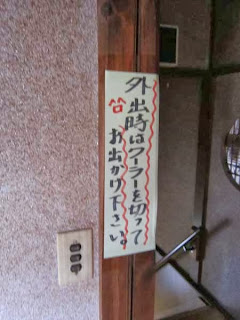 外出時はクーラーを切って
お出かけ下さい。